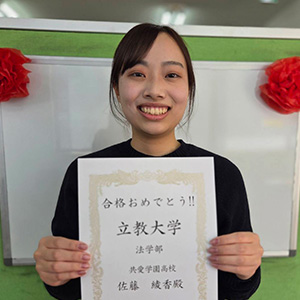 合格おめでとう!!
立教大学
法学部
共愛学園高校
佐藤 綾香殿